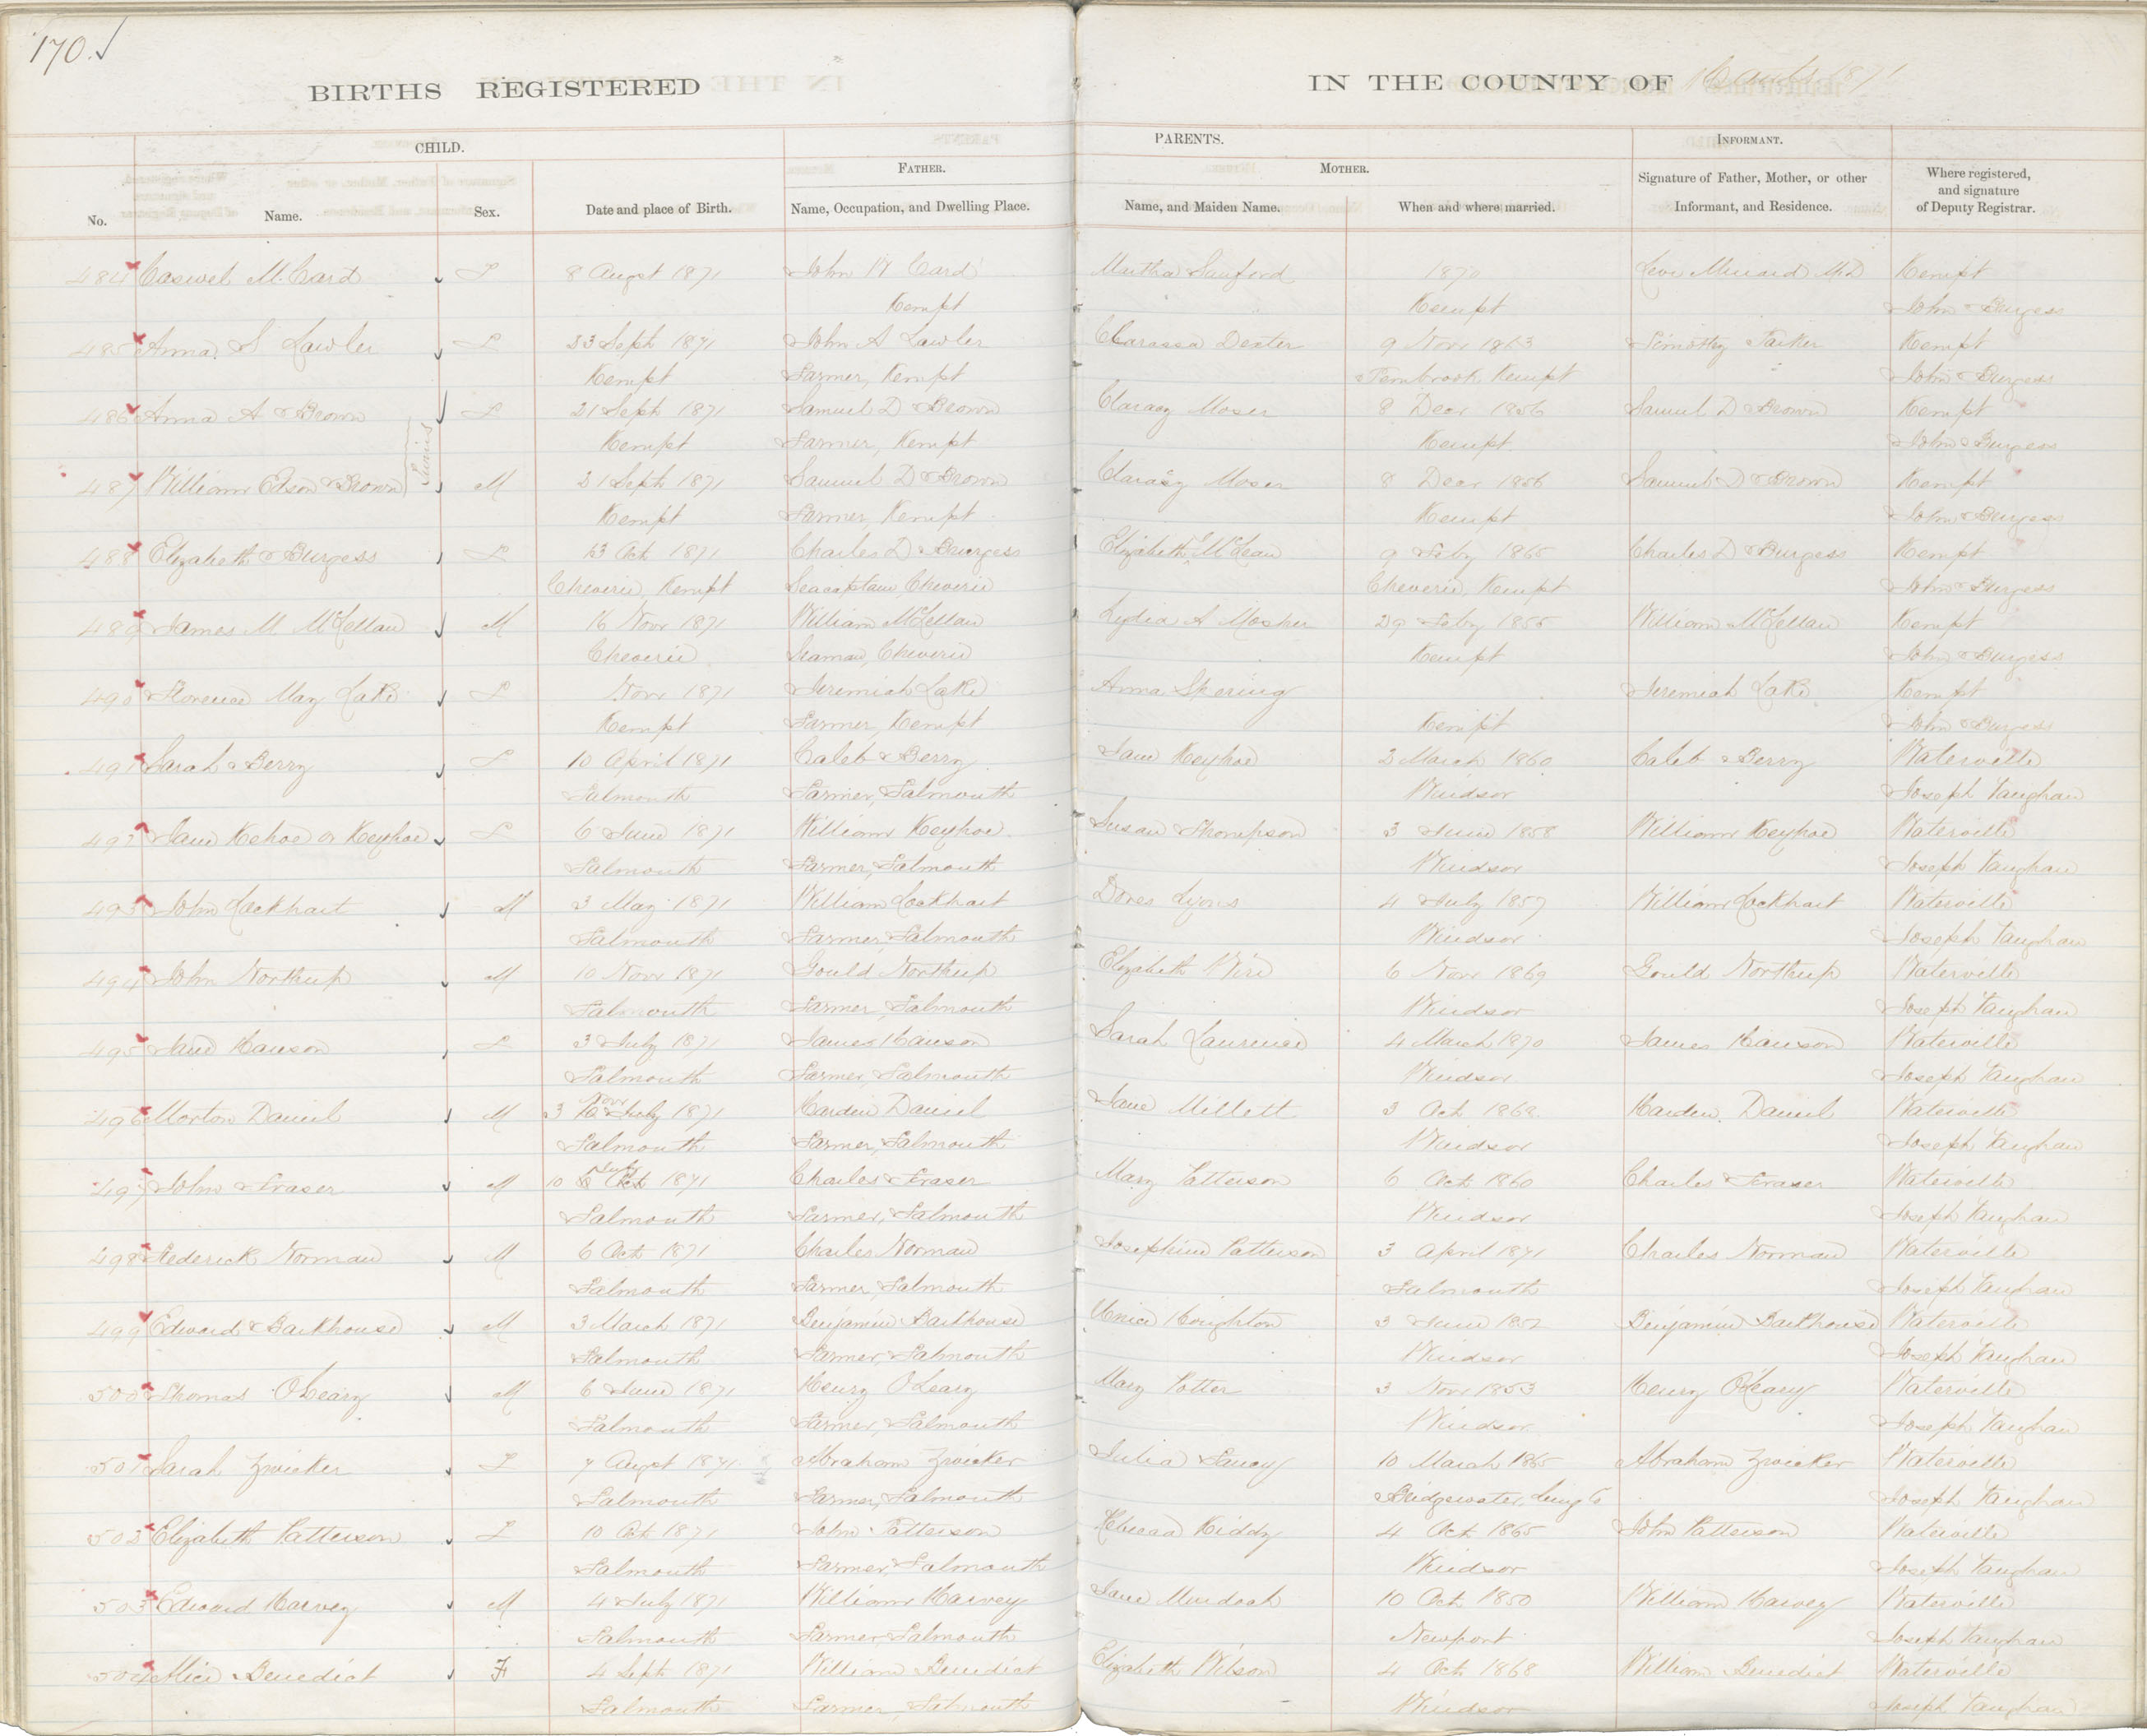 170.
BIRTHS REGISTERED IN THE COUNTY OF Hants 1871
CHILD. PARENTS. INFORMANT.
FATHER. MOTHER.
No. Name. Sex. Date and place of Birth. Name, Occupation, and Dwelling Place. Name, and Maiden Name. When and where married. Signature of Father, Mother, or other Informant, and Residence. Where registered, and signature of Deputy Registrar.
484 Caswel M. Card F 8 Augst 1871 John W Card Martha Sanford 1870 Levi Minard MD Kempt
Kempt Kempt John Burgess
485 Anna S Lawler F 23 Sept 1871 John A Lawler Clarassa Dexter 9 Novr 1863 Timothy Parker Kempt
Kempt Farmer, Kempt Pembrook, Kempt John Burgess
486 Anna A Brown F 21 Sept 1871 Samuel D Brown Claracy Moser 8 Decr 1856 Samuel D Brown Kempt
Kempt Farmer, Kempt Kempt John Burgess
Twins
487 William Edson Brown M 21 Sept 1871 Samuel D Brown Claracy Moser 8 Decr 1856 Samuel D Brown Kempt
Kempt Farmer, Kempt Kempt John Burgess
488 Elizabeth Burgess F 13 Oct 1871 Charles D Burgess Elizabeth McLean 9 Feby 1865 Charles D Burgess Kempt
Cheverie, Kempt Seacaptain, Cheverie Cheverie, Kempt John Burgess
489 James M McLellan M 16 Novr 1871 William McLellan Lydia A Mosher 29 Feby 1855 William McLellan Kempt
Cheverie Seaman, Cheverie Kempt John Burgess
490 Florence May Lake F Novr 1871 Jeremiah Lake Anna Skering Jeremiah Lake Kempt
Kempt Farmer, Kempt Kempt John Burgess
491 Sarah Berry F 10 April 1871 Caleb Berry Jane Keyhoe 2 March 1860 Caleb Berry Waterville
Falmouth Farmer, Falmouth Windsor Joseph Vaughan
492 Jane Kehoe or Keyhoe F 6 June 1871 William Keyhoe Susan Thompson 3 June 1858 William Keyhoe Waterville
Falmouth Farmer, Falmouth Windsor Joseph Vaughan
493 John Lockhart M 3 May 1871 William Lockhart Dores Lyons 4 July 1857 William Lockhart Waterville
Falmouth Farmer, Falmouth Windsor Joseph Vaughan
494 John Northup M 10 Novr 1871 Gould Northup Elizabeth Wire 6 Novr 1869 Gould Northup Waterville
Falmouth Farmer, Falmouth Windsor Joseph Vaughan
495 Jane Hanson F 3 July 1871 James Hanson Sarah Laurence 4 March 1870 James Hanson Waterville
Falmouth Farmer, Falmouth Windsor Joseph Vaughan
496 Morton Daniel M 3 Novr 10 July 1871 Harden Daniel Jane Millett 3 Oct 1862 Harden Daniel Waterville
Falmouth Farmer, Falmouth Windsor Joseph Vaughan
497 John Fraser M 10 July 6 Oct 1871 Charles Fraser Mary Patterson 6 Oct 1860 Charles Fraser Waterville
Falmouth Farmer, Falmouth Windsor Joseph Vaughan
498 Frederick Norman M 6 Oct 1871 Charles Norman Josephine Patterson 3 April 1871 Charles Norman Waterville
Falmouth Farmer, Falmouth Falmouth Joseph Vaughan
499 Edward Barkhouse M 3 March 1871 Benjamin Barkhouse Unice Houghton 3 June 1852 Benjamin Barkhouse Waterville
Falmouth Farmer, Falmouth Windsor Joseph Vaughan
500 Thomas O'Leary M 6 June 1871 Henry O'Leary Mary Potter 3 Novr 1853 Henry O'Leary Waterville
Falmouth Farmer, Falmouth Windsor Joseph Vaughan
501 Sarah Zwicker F 7 Augst 1871 Abraham Zwicker Julia Fancy 10 March 1865 Abraham Zwicker Waterville
Falmouth Farmer, Falmouth Bridgewater, Lung Co Joseph Vaughan
502 Elizabeth Patterson F 10 Oct 1871 John Patterson Rebecca Kiddy 4 Oct 1865 John Patterson Waterville
Falmouth Farmer, Falmouth Windsor Joseph Vaughan
503 Edward Harvey M 4 July 1871 William Harvey Jane Murdoch 10 Oct 1850 William Harvey Waterville
Falmouth Farmer, Falmouth Newport Joseph Vaughan
504 Alice Benedict F 4 Sept 1871 William Benedict Elizabeth Wilson 4 Oct 1868 William Benedict Waterville
Falmouth Farmer, Falmouth Windsor Joseph Vaughan